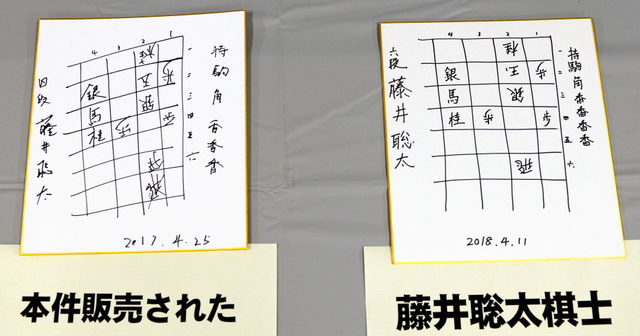 4 3 2 1
桂 一
玉 歩 二
銀 銀 三
馬 四
桂 歩 歩 五
六
飛
持駒 角 香香香
四段 藤井聡太
2017.4.25
本件販売された
4 3 2 1
桂 一
銀 玉 歩 二
馬 銀 三
桂 歩 歩 四
五
飛 六
持駒 角 香香香香
六段 藤井聡太
2018.4.11
藤井聡太棋士